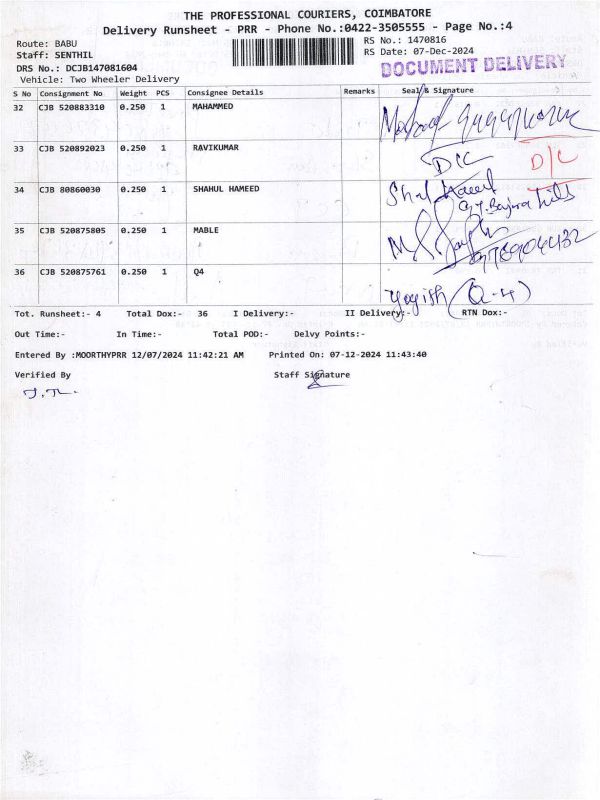 THE PROFESSIONAL COURIERS, COIMBATORE
Delivery Runsheet - PRR - Phone No.:0422-3505555 - Page No.:4
Route: BABU
Staff: SENTHIL
DRS No.: DCJB147081604
Vehicle: Two Wheeler Delivery
RS No.: 1470816
RS Date: 07-Dec-2024
DOCUMENT DELIVERY
S No Consignment No Weight PCS Consignee Details Remarks Seal & Signature
32 CJB 520883310 0.250 1 MAHAMMED
33 CJB 520892023 0.250 1 RAVIKUMAR D/C D/C
34 CJB 80860030 0.250 1 SHAHUL HAMEED
35 CJB 520875805 0.250 1 MABLE
36 CJB 520875761 0.250 1 Q4 Yogish (Q-4)
Tot. Runsheet:- 4 Total Dox:- 36 I Delivery:- II Delivery:- RTN Dox:-
Out Time:- In Time:- Total POD:- Delvy Points:-
Entered By :MOORTHYPRR 12/07/2024 11:42:21 AM Printed On: 07-12-2024 11:43:40
Verified By Staff Signature